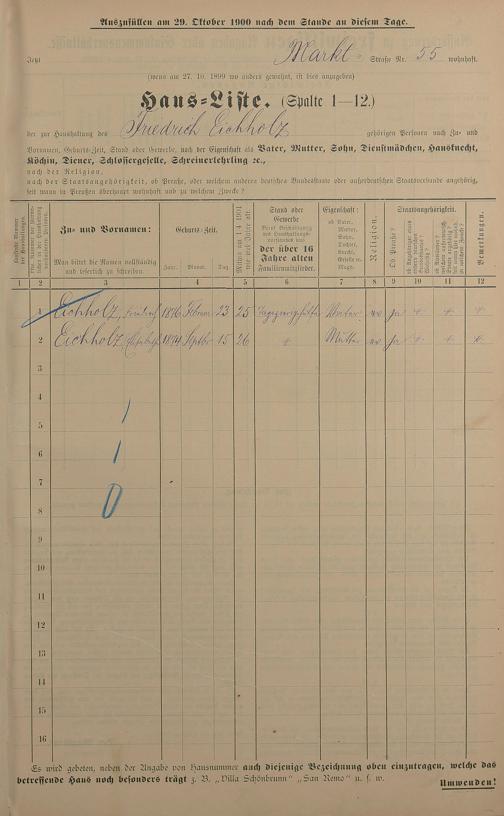 Auszufüllen am 29. Oktober 1900 nach dem Stande an diesem Tage.
Jetzt Markt- Straße Nr. 55 wohnhaft.
(wenn am 27. 10. 1899 wo anders gewohnt, ist dies anzugeben)
Haus-Liste. (Spalte 1—12.)
der zur Haushaltung des Friedrich Eichholz gehörigen Personen nach Zu- und
Vornamen, Geburts-Zeit, Stand oder Gewerbe, nach der Eigenschaft als Vater, Mutter, Sohn, Dienstmädchen, Hausknecht,
Köchin, Diener, Schlossergeselle, Schreinerlehrling ec.,
nach der Religion,
nach der Staatsangehörigkeit, ob Preuße, oder welchem anderen deutschen Bundesstaate oder außerdeutschen Staatsverbande angehörig,
seit wann in Preußen überhaupt wohnhaft und zu welchem Zwecke?
Zu- und Vornamen:
Man bittet die Namen vollständig
und leserlich zu schreiben.
Geburts-Zeit.
Jahr. Monat. Tag
Stand oder
Gewerbe
der über 16
Jahre alten
Familienmitglieder.
Eigenschaft:
ob Vater,
Mutter,
Sohn,
Tochter,
Knecht,
Geselle u.
Magd.
Religion.
Staatsangehörigkeit.
Ob Preuße?
Bemerkungen.
1 2 3 4 5 6 7 8 9 10 11 12
1 Eichholz, Friedrich 1876 Februar 23 25 Vater ev ja + + +
2 Eichholz, 1874 Septbr 15 26 + Mutter ev ja + + +
3
4
5
6
7
8
9
10
11
12
13
14
15
16
Es wird gebeten, neben der Angabe von Hausnummer auch diejenige Bezeichnung oben einzutragen, welche das
betreffende Haus noch besonders trägt z. B. „Villa Schönbrunn" „San Remo" u. s. w.
Umwenden!